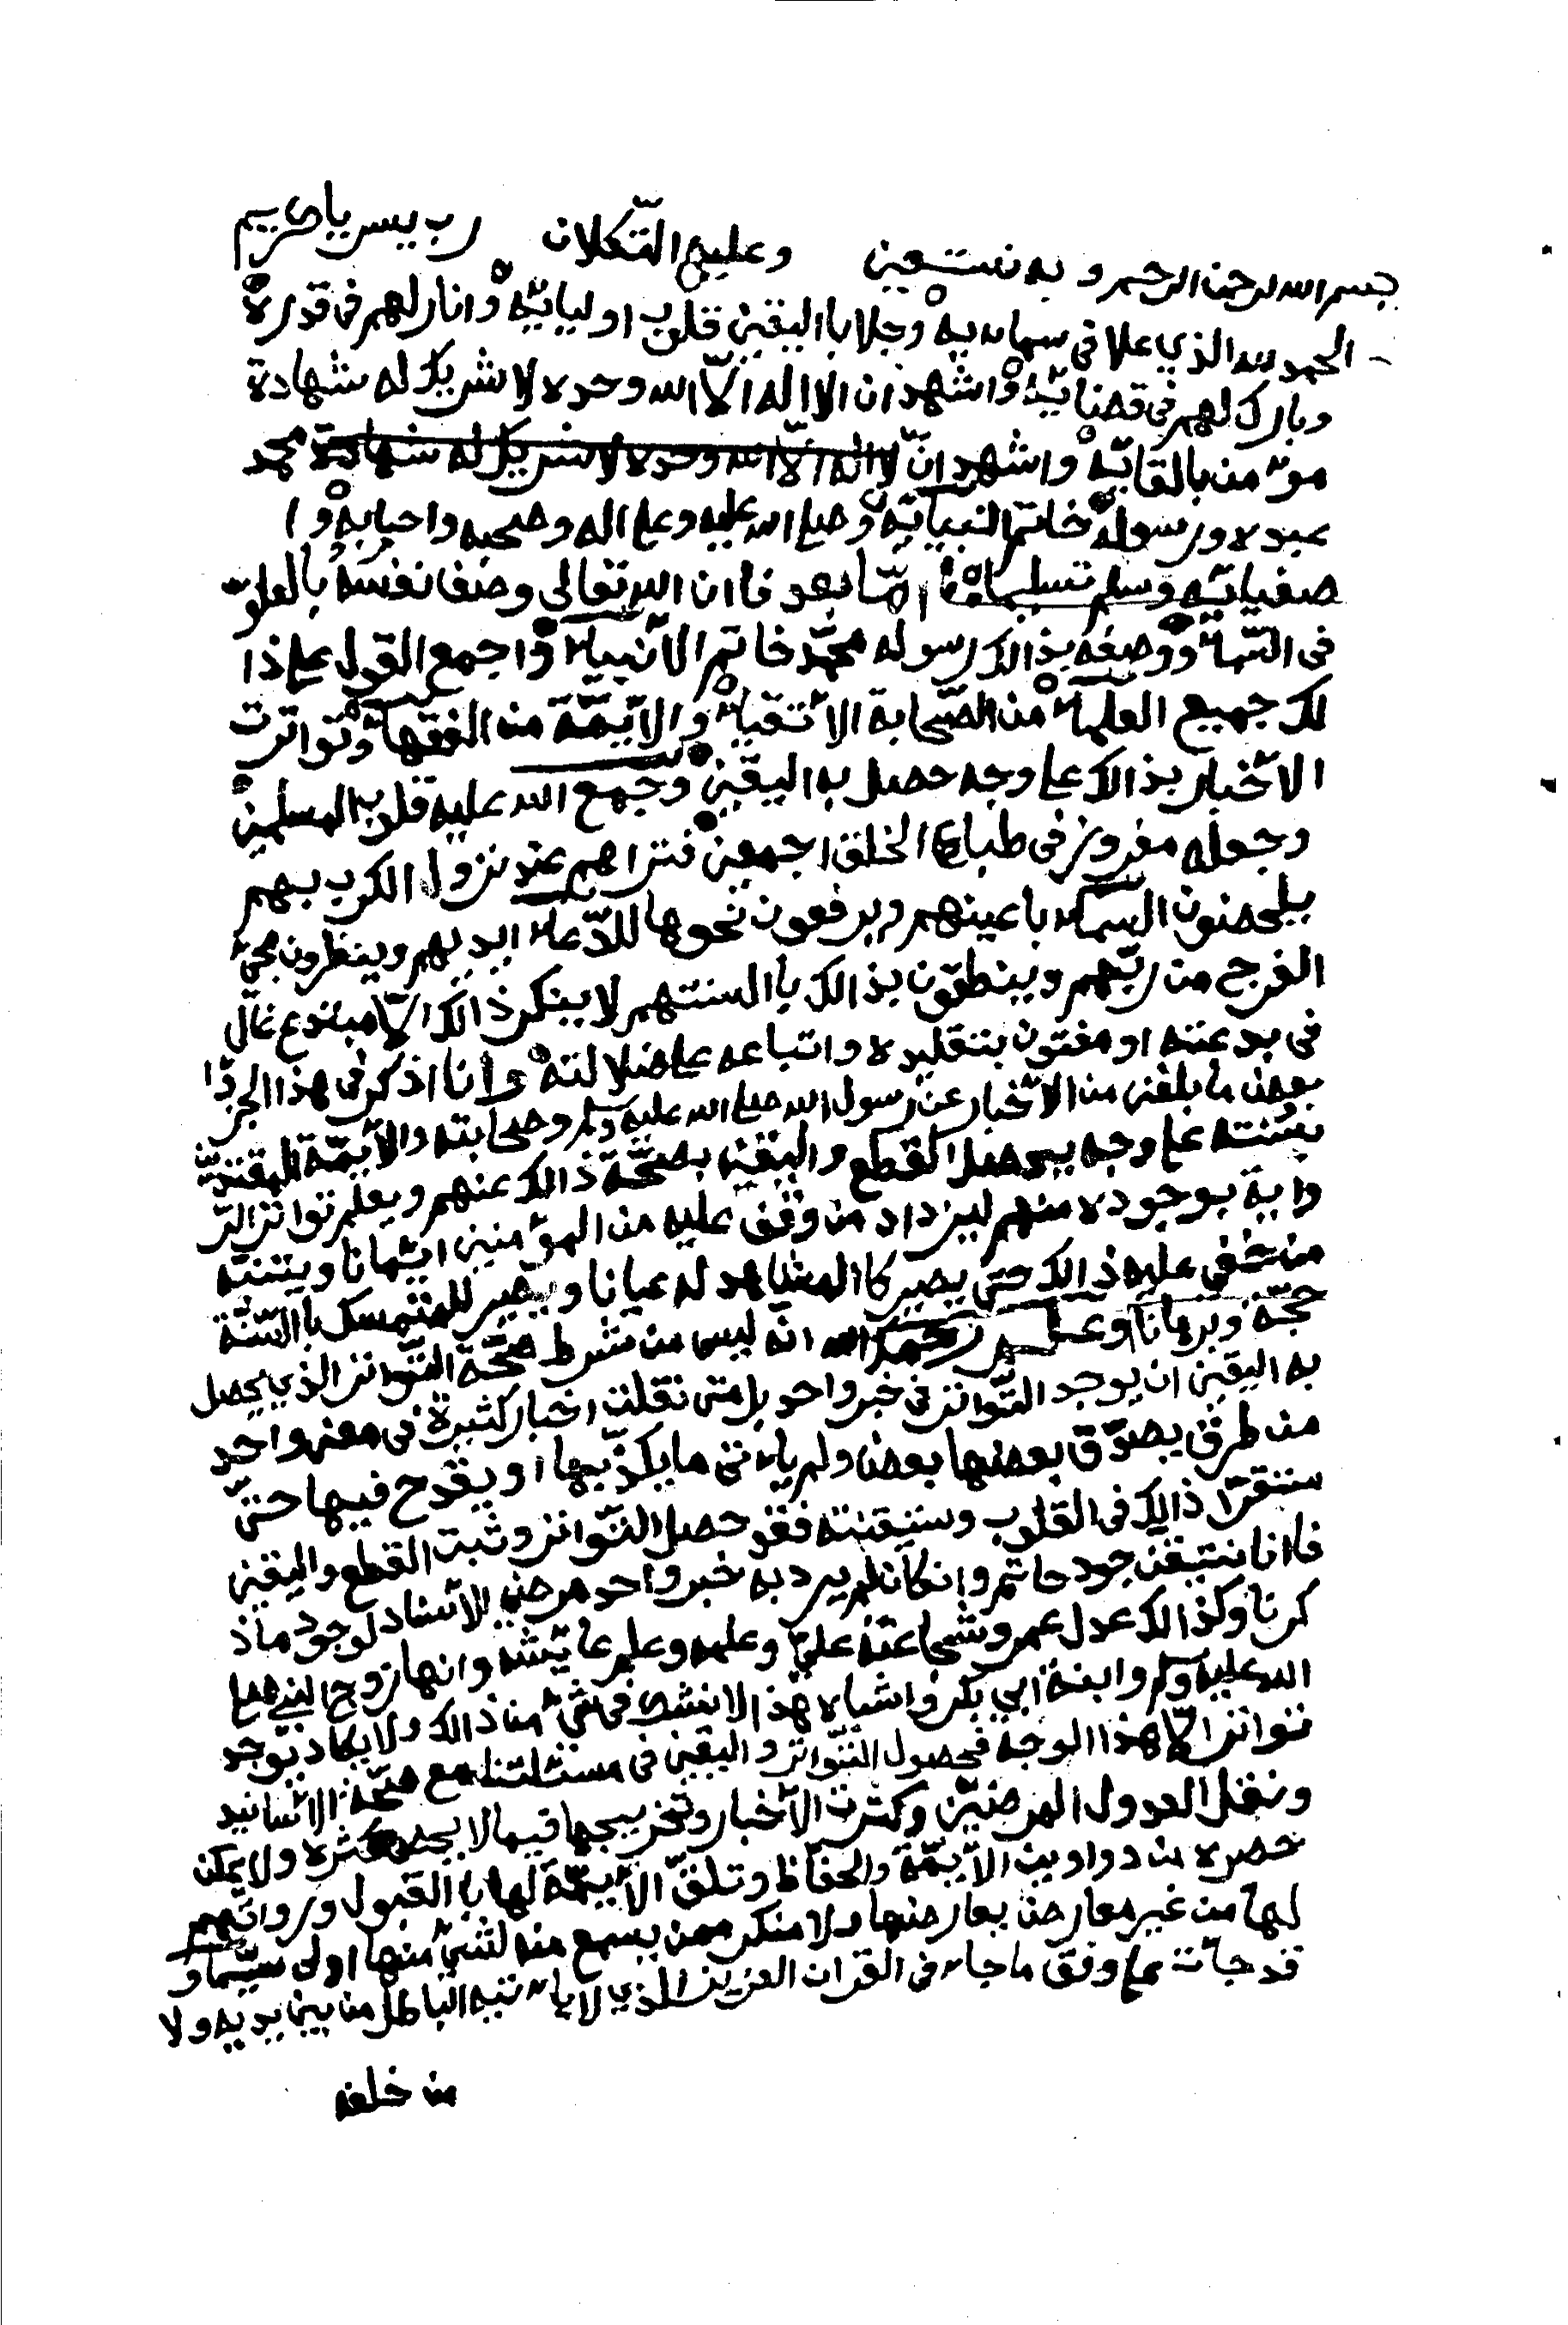 بسم الله الرحمن الرحيم وبه نستعين وعليه التكلان رب يسر يا كريم
الحمد لله الذي علا في سمائه وجلا باليقين قلوب اوليائه وانار لهم في قدره
وبارك لهم في قضائه واشهد ان لا اله الّا الله وحده لا شريك له شهادة
مؤمن بالقائه واشهد انّ لا اله الّا الله وحده لا شريك له شهادة محمد
عبده ورسوله خاتم النبيائه وصلى الله عليه وعلى اله وصحبه واحبابه وا
صفيائه وسلم تسليما امّا بعد فاان الله تعالى وصف نفسه بالعلوّ
في السّماء ووصفه بذالك رسوله محمّد خاتم الأنبياء واجمع القول على ذا
لك جميع العلماء من الصّحابة الأتقياء والأيمّة من الفقهاء وتواترت
الأخبار بذالك على وجه حصل به اليقين وجمع الله عليه قلوب المسلمين
وجعله مغروز في طبايع الخلق اجمعين فتراهم عند نزول الكرب بهم
يلحضون السماء باعينهم ويرفعون نحوها للدّعاء ايديهم وينظرون مجيء
الفرج من ربّهم وينطقون بذالك باالسنتهم لا ينكر ذالك الّا مبتدع غال
في بدعته او مفتون بتقليده واتباعه على ضلالته وانا اذكر في هذا الجزء
بعض ما بلغني من الأخبار عن رسول الله صلى الله عليه وسلم وصحابته والأيمّة المقتدين
بسنته على وجه يحصل القطع واليقين بصحّة ذالك عنهم ويعلم تواتر الرّ
واية بوجوده منهم ليزداد من وقف عليه من المؤمنين ايمانا ويتنبّه
من خفي عليه ذالك حتى يصير كاالمشاهد له عيانا ويصير للمتمسك باالسّنّة
حجّة وبرهانا و رحمك الله انّه ليس من شرط صحّة التّواتر الذي يحصل
به اليقين ان يوجد التّواتر في خبر واحد بل متى نقلت اخبار كثيرة في معنى واحد
من طرق يصدّق بعضها بعض ولم ياءتي ما يكذّبها او يقدح فيها حتىّ
ستقرّ ذالك في القلوب وستيقنته فقد حصل التّواتر وثبت القطع واليقين
فاانا نتيقّن جود حاتم وانكان لم يرد به خبر واحد مرضي الأسناد لوجود ماذ
كرنا وكذالك عدل عمر وشجاعته عليّ وعلمه وعلم عايشه وانها زوج النبي صلى
الله عليه وسلم وابنة ابي بكر واشباه هذا لا نشك في شيء من ذالك ولا يكاد يوجد
تواترا الّا هذا الوجه فحصول التّواتر واليقين في مسئلتنا مع صحّة الأسانيد
ونقل العدول المرضيّين وكثرت الأخبار وتخريجها فيما لا يحصى كثره ولا يمكن
حصره من دواوين الأيمّة والحفّاظ وتلقّ الأيمّة لها باالقبول ورواتهم
لها من غير معارض يعارضها ولا منكر ممن يسمع منه لشيء منها اولى سيّما و
قد جاءت على وفق ما جاء في القران العزيز الذي لا ياءتيه الباطل من بين يديه ولا
من خلفه